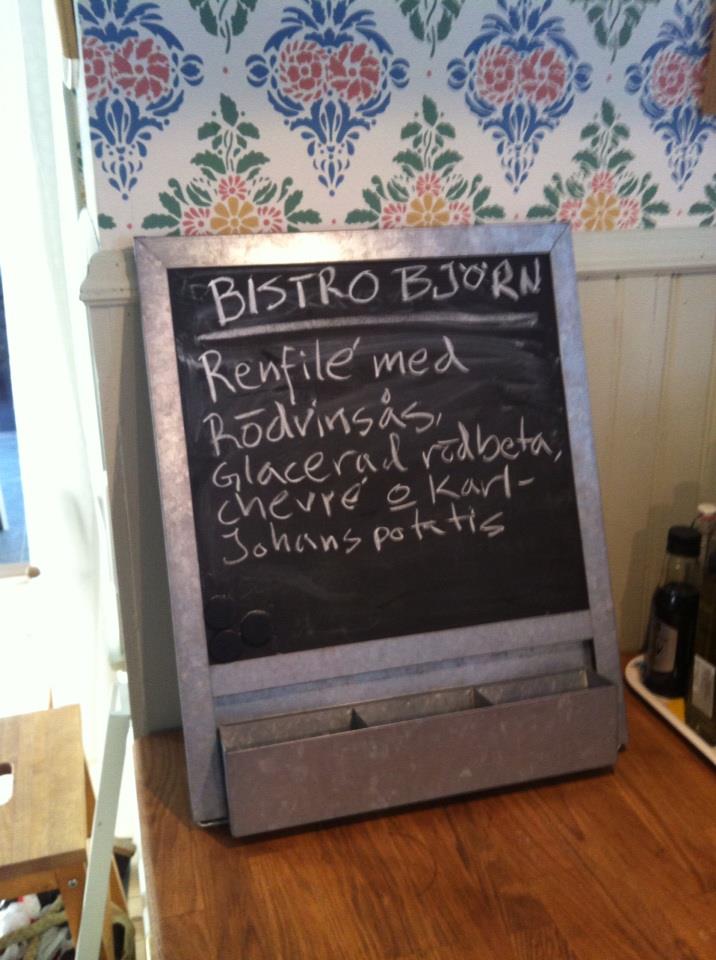 BISTRO BJÖRN
Renfilé med
Rödvinsås,
Glacerad rödbeta,
chevré o karl-
Johans potatis